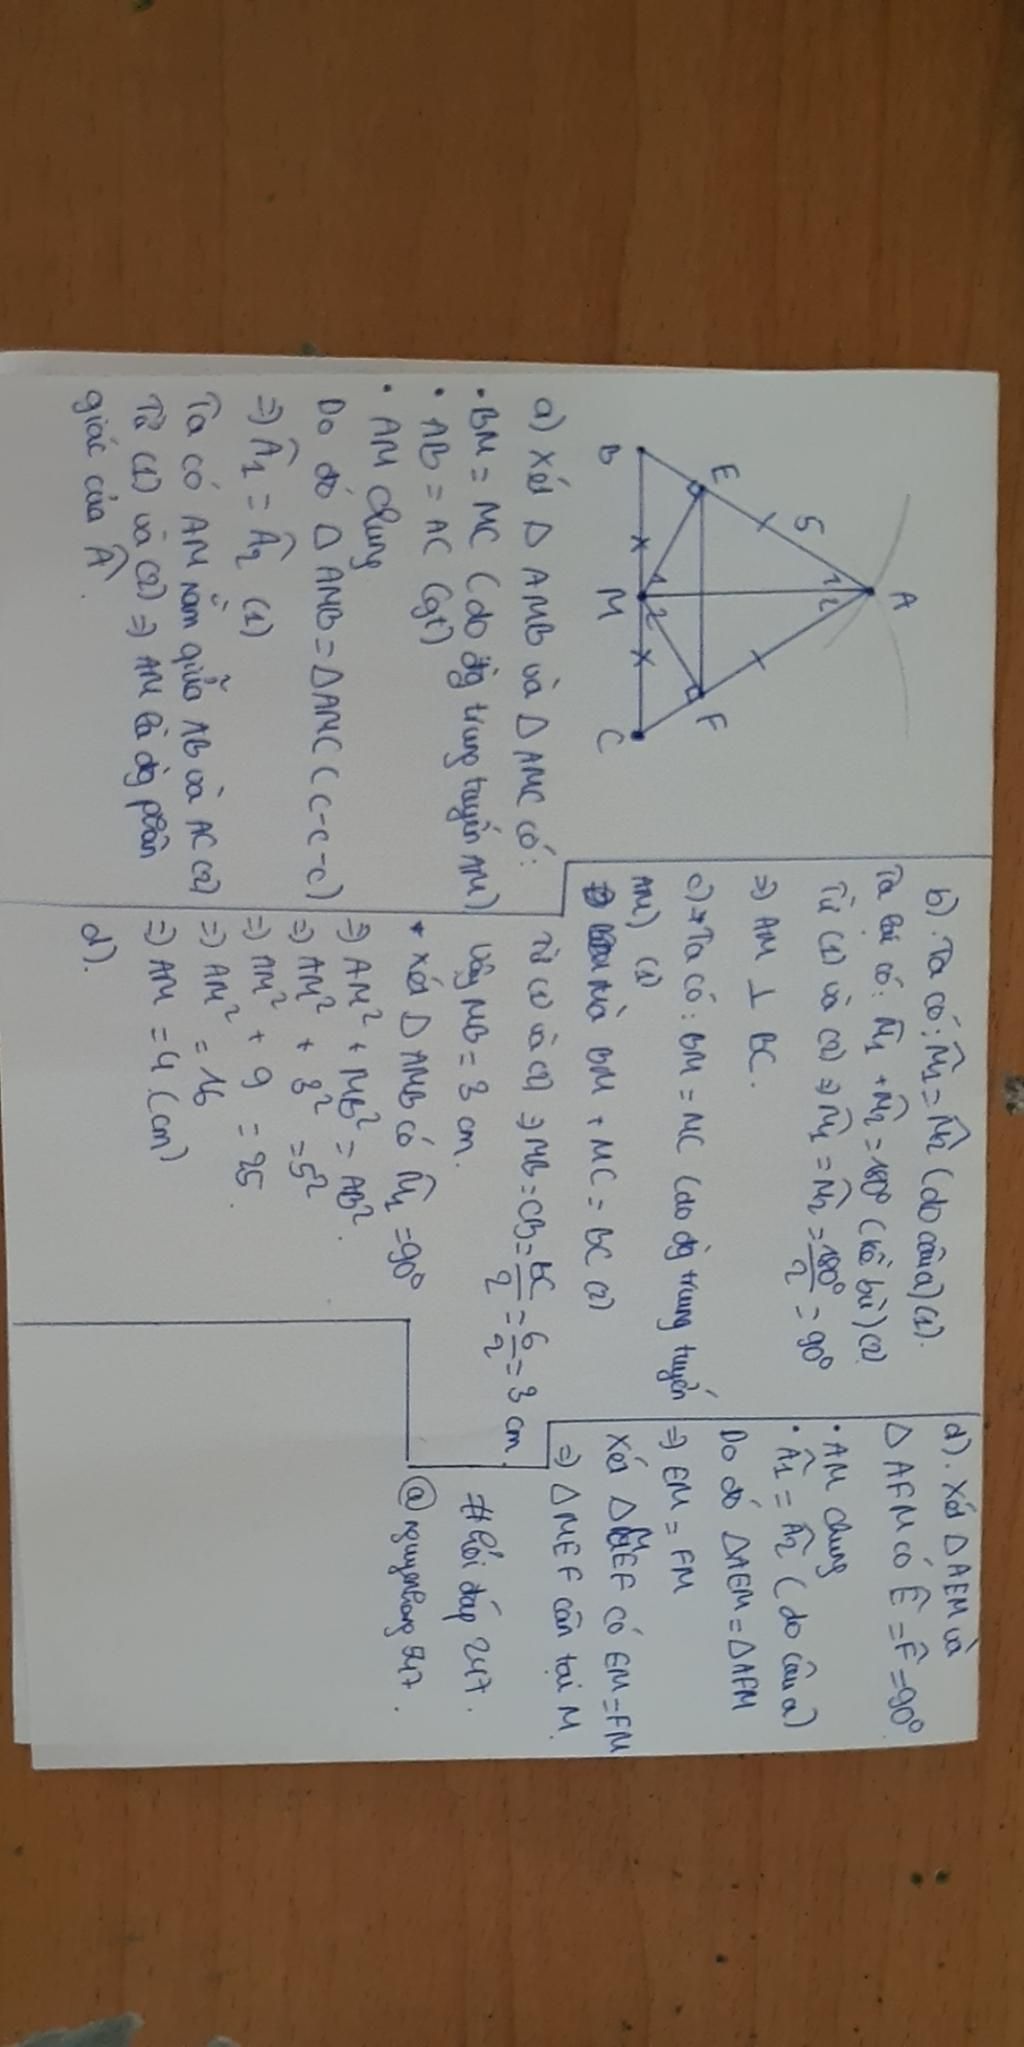 A
5
1 2
E
F
1 2
B
M
C
a) Xét Δ AMB và Δ AMC có:
• BM = MC (do đg trung tuyến AM)
• AB = AC (gt)
• AM chung
Do đó Δ AMB = Δ AMC (c-c-c)
⇒ Â1 = Â2 (1)
Ta có AM nằm giữa AB và AC (2)
Từ (1) và (2) ⇒ AM là đg phân
giác của Â.
b). Ta có: M̂1 = M̂2 (do câu a) (1).
Ta lại có: M̂1 + M̂2 = 180° (kề bù) (2)
Từ (1) và (2) ⇒ M̂1 = M̂2 = 180°/2 = 90°
⇒ AM ⊥ BC.
c) * Ta có: BM = MC (do đg trung tuyến
AM) (1)
Mà BM + MC = BC (2)
Từ (1) và (2) ⇒ MB = CB = BC/2 = 6/2 = 3 cm.
Vậy MB = 3 cm.
* Xét Δ AMB có M̂1 = 90°
⇒ AM² + MB² = AB².
⇒ AM² + 3² = 5²
⇒ AM² + 9 = 25.
⇒ AM² = 16
⇒ AM = 4 (cm)
d).
d). Xét Δ AEM và
Δ AFM có Ê = F̂ = 90°
• AM chung
• Â1 = Â2 (do câu a)
Do đó Δ AEM = Δ AFM
⇒ EM = FM
Xét Δ MEF có EM = FM
⇒ Δ MEF cân tại M.
# hỏi đáp 247.